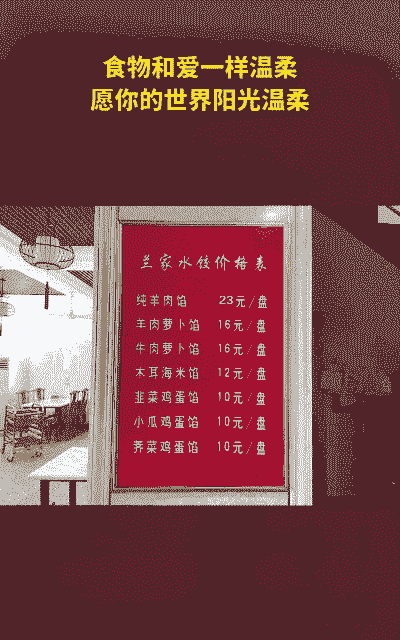 食物和爱一样温柔
愿你的世界阳光温柔
兰家水饺价格表
纯羊肉馅 23元/盘
羊肉萝卜馅 16元/盘
牛肉萝卜馅 16元/盘
木耳海米馅 12元/盘
韭菜鸡蛋馅 10元/盘
小瓜鸡蛋馅 10元/盘
荠菜鸡蛋馅 10元/盘